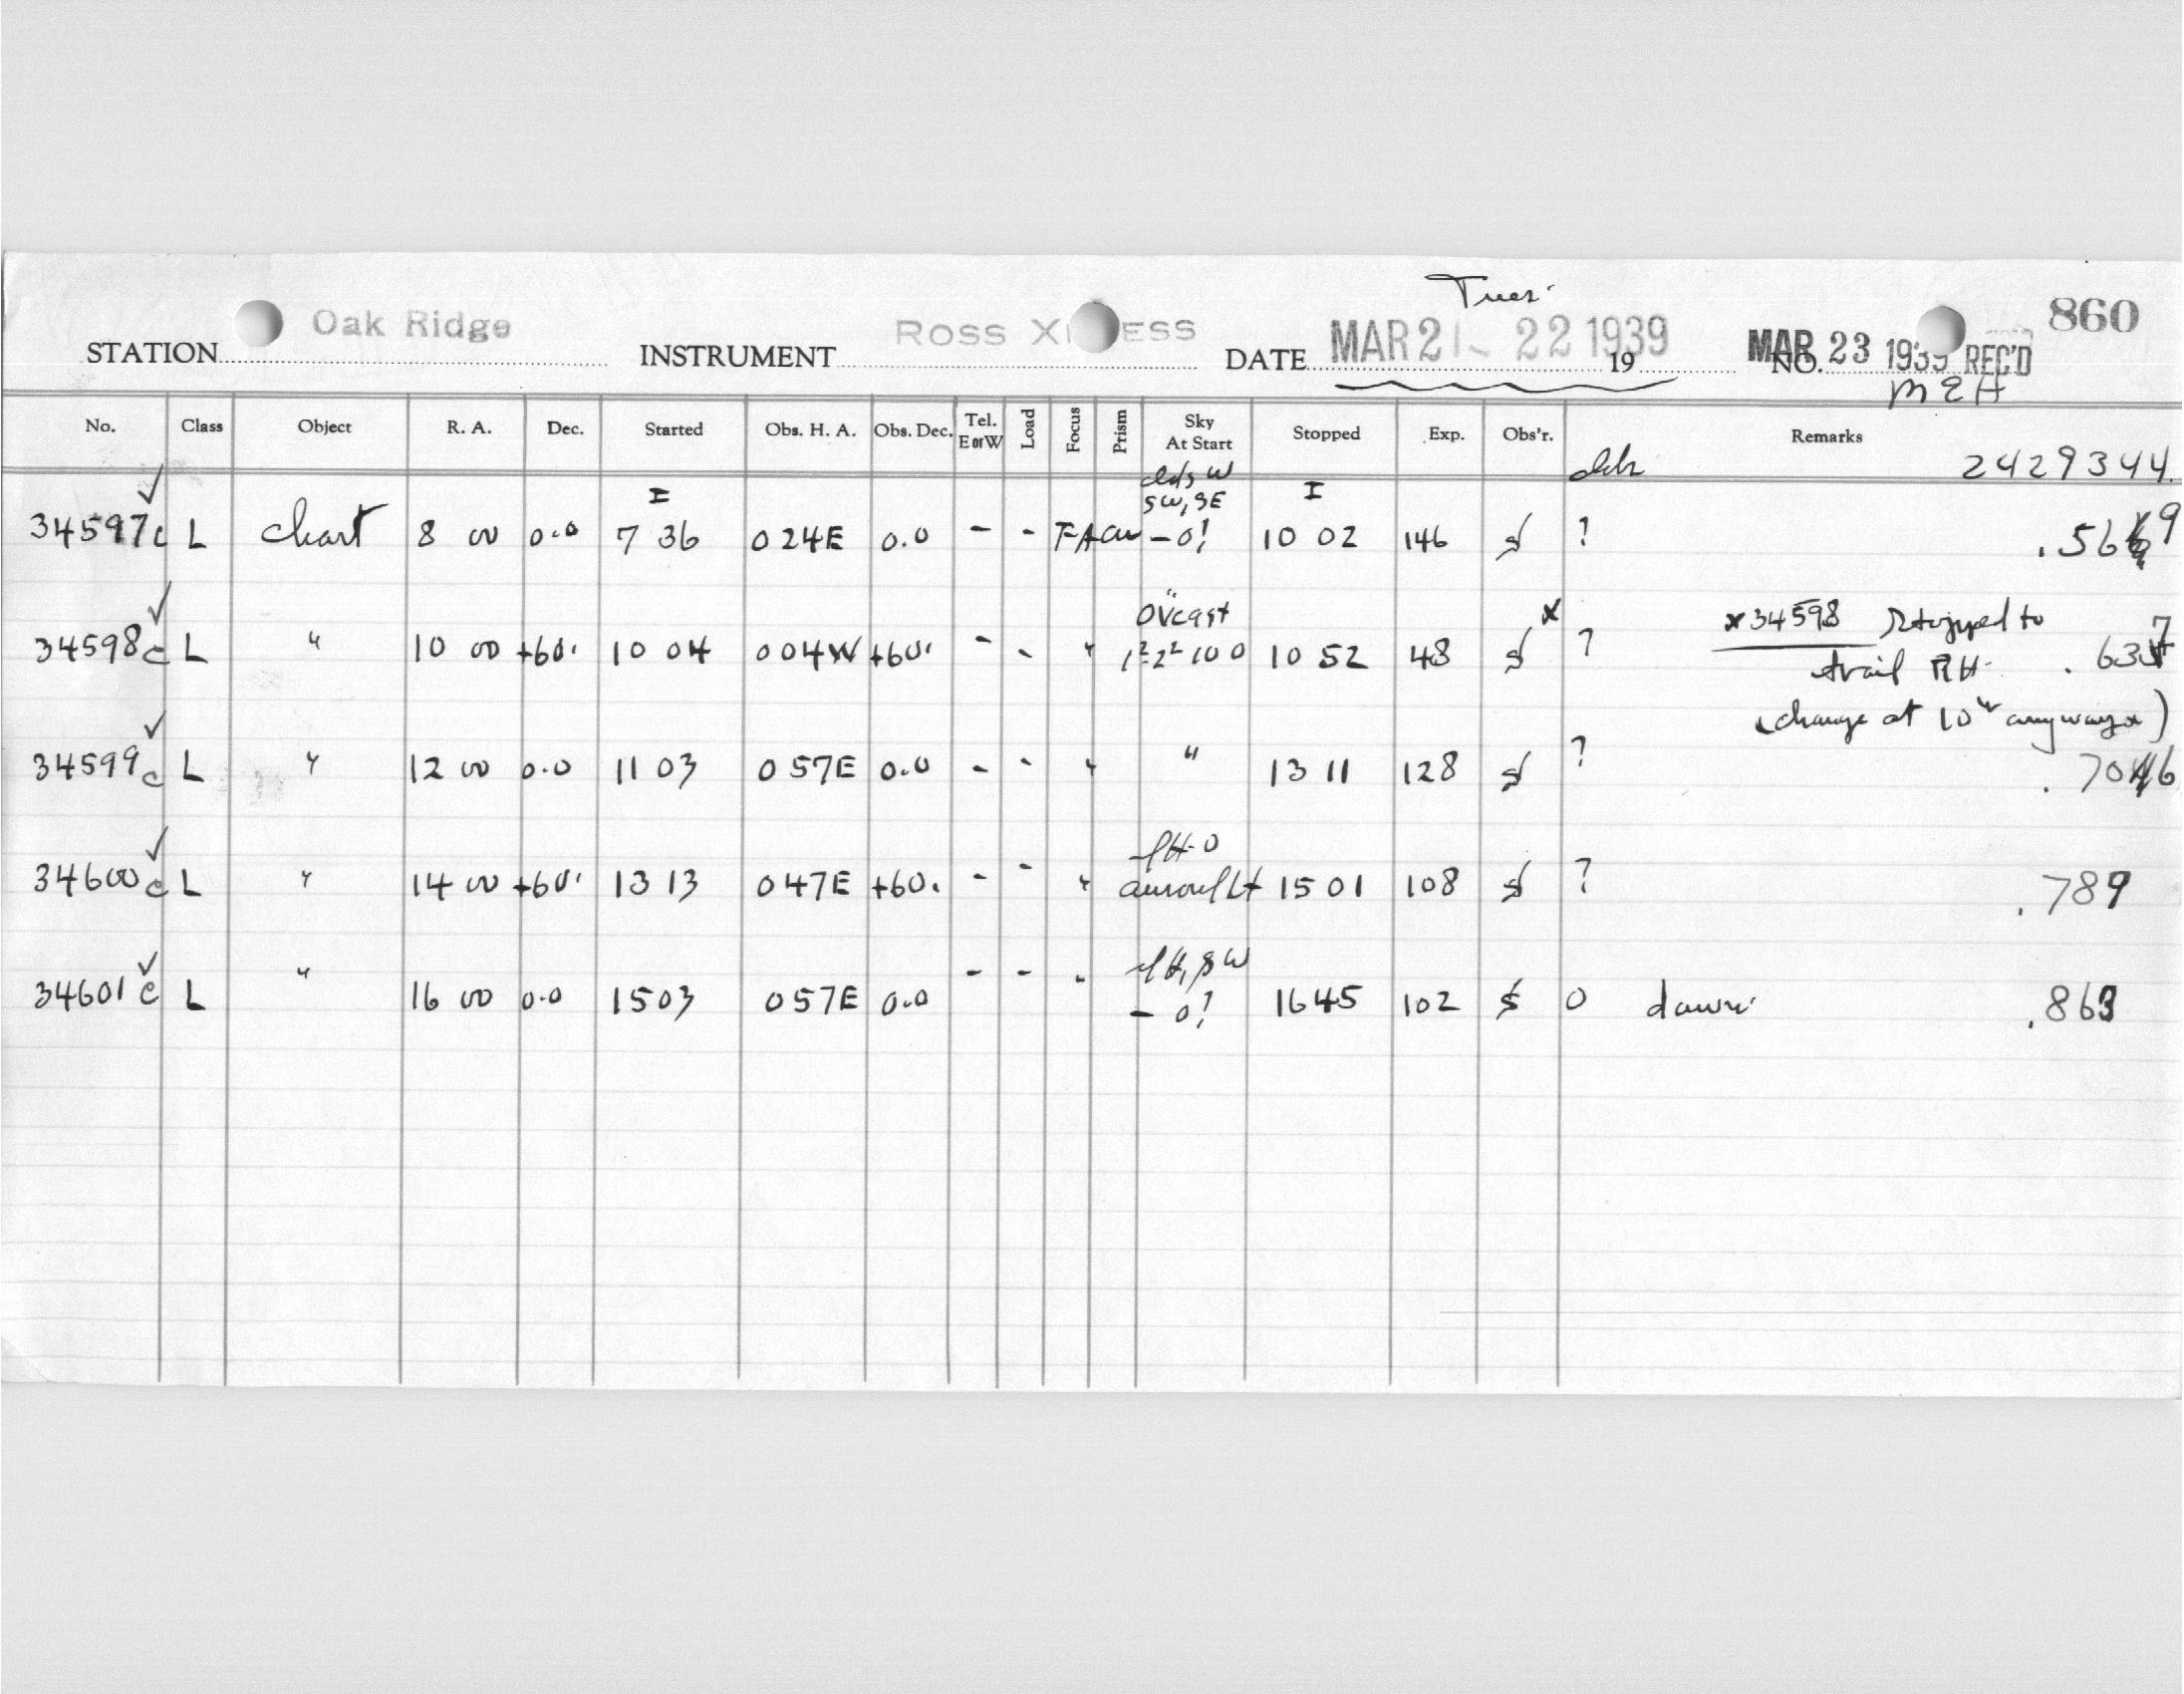 Tues.
STATION Oak Ridge INSTRUMENT ROSS X ESS DATE MAR 21 - 22 1939 19 NO. MAR 23 1939 REC'D 860
MEH
No. Class Object R. A. Dec. Started Obs. H. A. Obs. Dec. Tel. E or W Load Focus Prism Sky At Start Stopped Exp. Obs'r. Remarks
2429344.
clds W
I SW, SE I
34597c L Chart 8 00 0.0 7 36 0 24E 0.0 - - FA - 0! 10 02 146 ? .569
Ovcast x x34598 stopped to
34598c L " 10 00 +60. 10 04 0 04W +60. - - " 1² 2² 10 0 10 52 48 ? trail RH. .637
(change at 10 anyway)
34599c L " 12 00 0.0 11 03 0 57E 0.0 - - " " 13 11 128 ? .706
34600c L " 14 00 +60. 13 13 0 47E +60. - - " 15 01 108 ? .789
34601c L " 16 00 0.0 15 03 0 57E 0.0 - - " - 0! 16 45 102 0 dawn .863